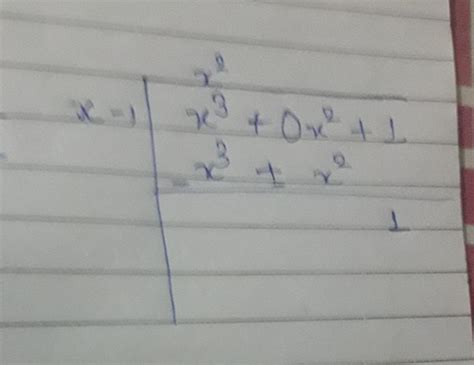 x²
x - 1 x³ + 0x² + 1
- x³ + x²
1